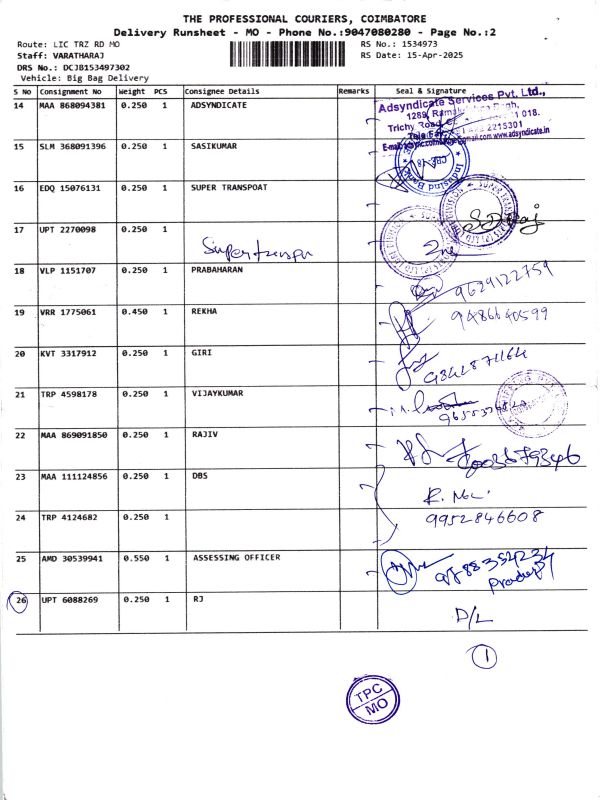 THE PROFESSIONAL COURIERS, COIMBATORE
Delivery Runsheet - MO - Phone No.:9047080280 - Page No.:2
Route: LIC TRZ RD MO
RS No.: 1534973
Staff: VARATHARAJ
RS Date: 15-Apr-2025
DRS No.: DCJB153497302
Vehicle: Big Bag Delivery
S No Consignment No Weight PCS Consignee Details Remarks Seal & Signature
14 MAA 868094381 0.250 1 ADSYNDICATE
Adsyndicate Services Pvt. Ltd.,
1289, Ram
Trichy Road, 018.
2215301
www.adsyndicate.in
15 SLM 368091396 0.250 1 SASIKUMAR
IndusInd Bank
16 EDQ 15076131 0.250 1 SUPER TRANSPOAT
17 UPT 2270098 0.250 1
18 VLP 1151707 0.250 1 PRABAHARAN
9629122759
19 VRR 1775061 0.450 1 REKHA
9486640599
20 KVT 3317912 0.250 1 GIRI
9842871164
21 TRP 4598178 0.250 1 VIJAYKUMAR
22 MAA 869091850 0.250 1 RAJIV
23 MAA 111124856 0.250 1 DBS
24 TRP 4124682 0.250 1
9952846608
25 AMD 30539941 0.550 1 ASSESSING OFFICER
Pradeep
26 UPT 6088269 0.250 1 RJ
D/L
1
TPC
MO